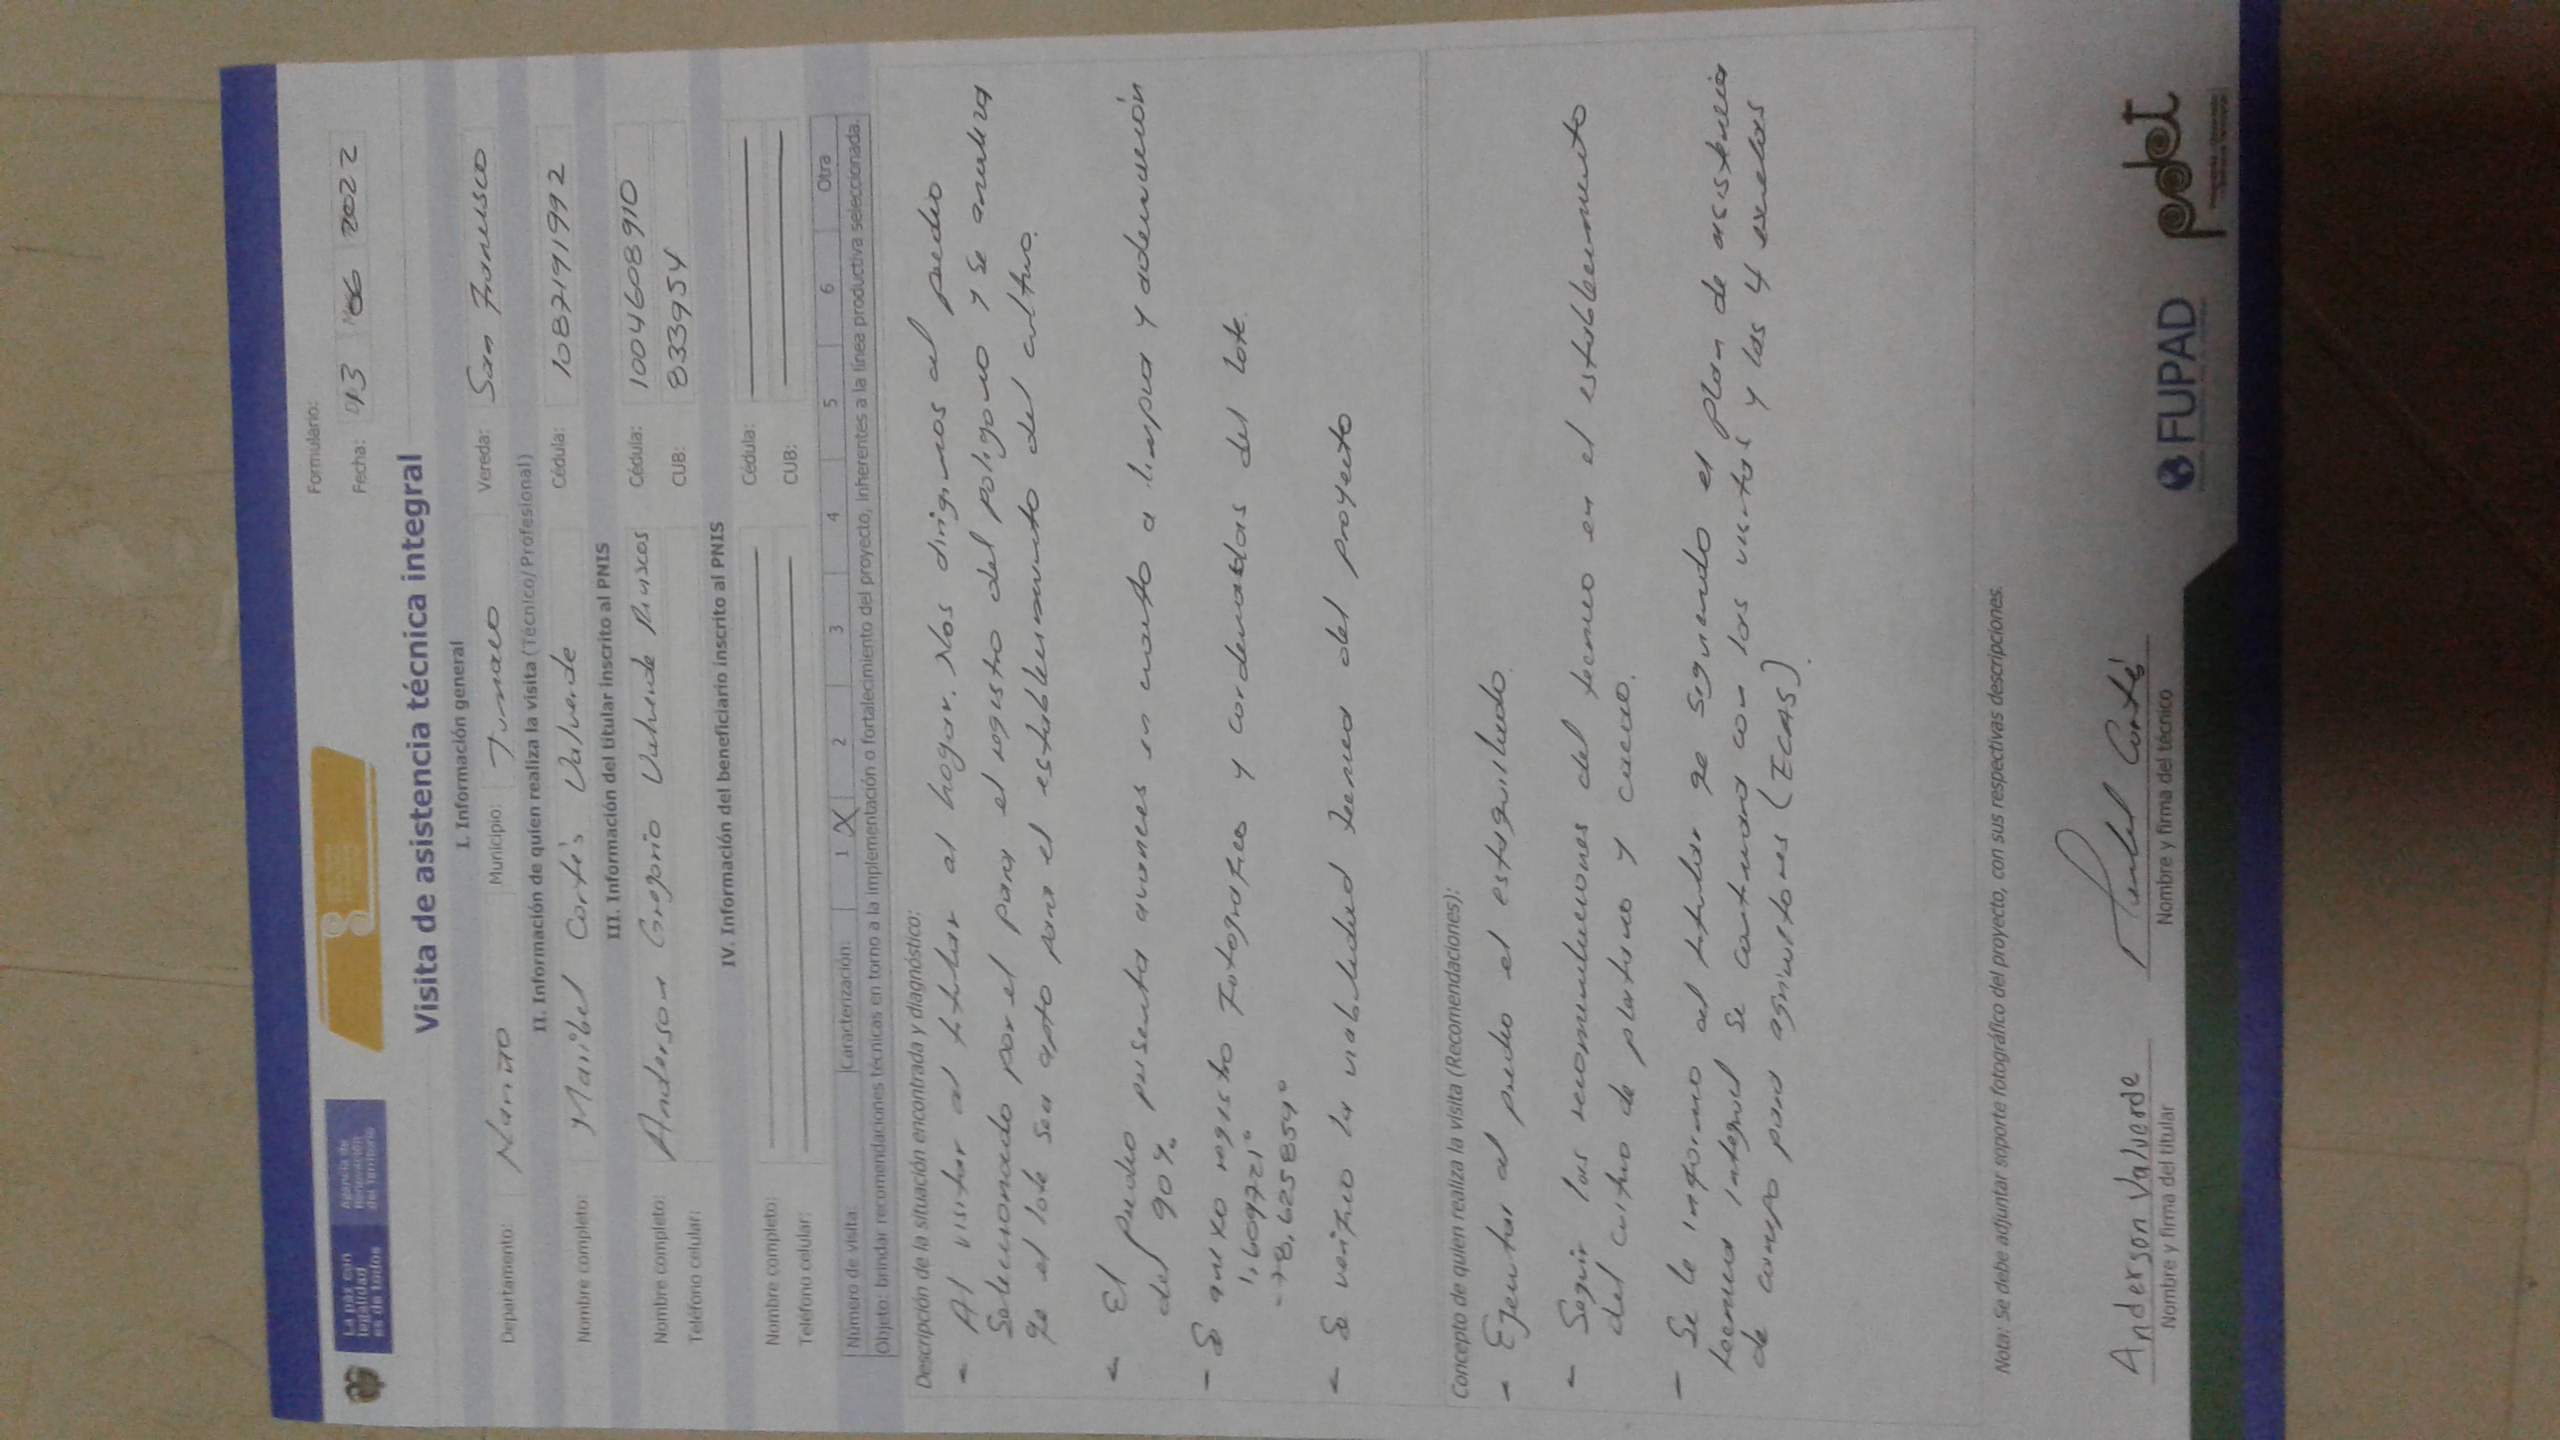 La paz con
legalidad
es de todos
Agencia de
Renovación
del Territorio
Formulario:
Fecha: 13 06 2022
Visita de asistencia técnica integral
I. Información general
Departamento: Nariño Municipio: Tumaco Vereda: San Francisco
II. Información de quien realiza la visita (Técnico/ Profesional)
Nombre completo: Maribel Cortés Valverde Cédula: 1087191992
III. Información del titular inscrito al PNIS
Nombre completo: Anderson Gregorio Valverde Cédula: 1004608910
Teléfono celular: CUB: 8339954
IV. Información del beneficiario inscrito al PNIS
Nombre completo: Cédula:
Teléfono celular: CUB:
Número de visita: Caracterización: 1 X 2 3 4 5 6 Otra
Objeto: brindar recomendaciones técnicas en torno a la implementación o fortalecimiento del proyecto, inherentes a la línea productiva seleccionada.
Descripción de la situación encontrada y diagnóstico:
- Al visitar al titular al hogar. Nos dirigimos al predio
Seleccionado por el para el registro del poligono y se analiza
qe el lote sea apto para el establecimiento del cultivo.
- El predio presenta avances en cuanto a limpia y adecuación
del 90%
- Se anexo registro Fotografico y cordenadas del lote.
1,609721°
-78,625859°
- Se verifico la viabilidad tecnica del proyecto
Concepto de quien realiza la visita (Recomendaciones):
- Ejecutar al predio el estaquillado.
- Seguir las recomendaciones del tecnico en el establecimiento
del cultivo de platano y cacao.
- Se le informo al titular qe siguiendo el plan de asistencia
tecnica integral se continuara con las visitas y las 4 escuelas
de campo para agricultores (ECAS).
Nota: Se debe adjuntar soporte fotográfico del proyecto, con sus respectivas descripciones.
Anderson Valverde
Nombre y firma del titular
Maribel Cortés
Nombre y firma del técnico
FUPAD
pdet